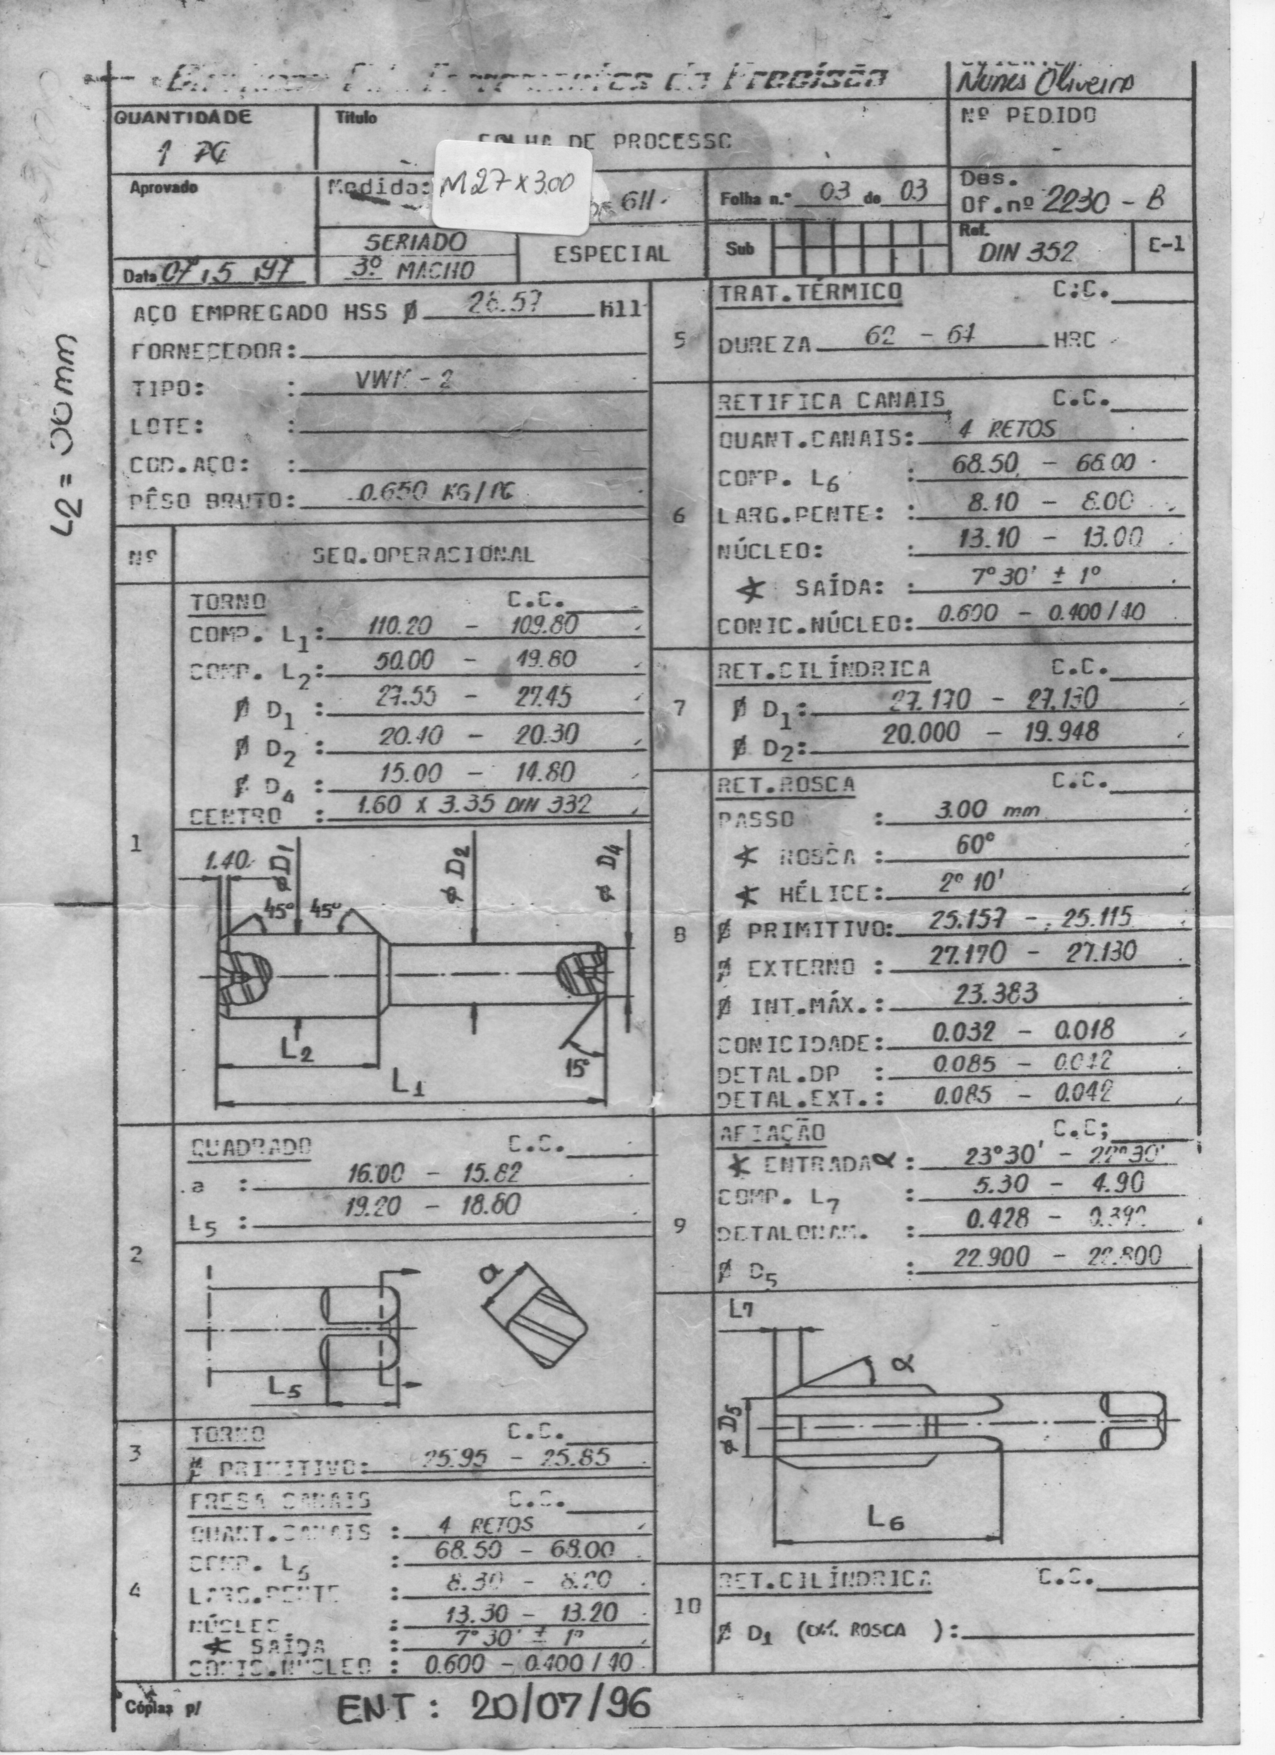 Ferramentas de Precisão
Nunes Oliveira
QUANTIDADE
1 PÇ
Título
FOLHA DE PROCESSO
Nº PEDIDO
-
Aprovado
Medida:
M27 x 3.00
6H
Folha n.º 03 de 03
Des.
Of.nº 2230 - B
SERIADO
3º MACHO
ESPECIAL
Sub
Ref.
DIN 352
E-1
Data 07 , 5 , 97
L2 = 50 mm
AÇO EMPREGADO HSS Ø 28.57 h11
FORNECEDOR:
TIPO: : VWM - 2
LOTE: :
COD.AÇO: :
PÊSO BRUTO: 0.650 KG/PÇ
Nº
SEQ.OPERACIONAL
1
TORNO C.C.
COMP. L1: 110.20 - 109.80
COMP. L2: 50.00 - 49.80
Ø D1 : 27.55 - 27.45
Ø D2 : 20.40 - 20.30
Ø D4 : 15.00 - 14.80
CENTRO : 1.60 X 3.35 DIN 332
1.40
Ø D1
Ø D2
Ø D4
45° 45°
L2
15°
L1
2
QUADRADO C.C.
a : 16.00 - 15.82
L5 : 19.20 - 18.80
a
L5
3
TORNO C.C.
Ø PRIMITIVO: 25.95 - 25.85
4
FRESA CANAIS C.C.
QUANT.CANAIS : 4 RETOS
COMP. L6 : 68.50 - 68.00
LARG.PENTE : 8.30 - 8.20
NÚCLEO : 13.30 - 13.20
∢ SAÍDA : 7°30' ± 1°
CONIC.NÚCLEO : 0.600 - 0.400 / 40
5
TRAT.TÉRMICO C.C.
DUREZA 62 - 64 HRC
6
RETIFICA CANAIS C.C.
QUANT.CANAIS: 4 RETOS
COMP. L6 : 68.50 - 68.00
LARG.PENTE: : 8.10 - 8.00
NÚCLEO: : 13.10 - 13.00
∢ SAÍDA: : 7°30' ± 1°
CONIC.NÚCLEO: 0.600 - 0.400 / 40
7
RET.CILÍNDRICA C.C.
Ø D1: 27.170 - 27.130
Ø D2: 20.000 - 19.948
8
RET.ROSCA C.C.
PASSO : 3.00 mm
∢ ROSCA : 60°
∢ HÉLICE: 2° 10'
Ø PRIMITIVO: 25.157 - 25.115
Ø EXTERNO : 27.170 - 27.130
Ø INT.MÁX.: 23.383
CONICIDADE: 0.032 - 0.018
DETAL.DP : 0.085 - 0.042
DETAL.EXT.: 0.085 - 0.042
9
AFIAÇÃO C.C;
∢ ENTRADA α : 23°30' - 22°30'
COMP. L7 : 5.30 - 4.90
DETALONAM. : 0.428 - 0.392
Ø D5 : 22.900 - 22.800
L7
α
Ø D5
L6
10
RET.CILÍNDRICA C.C.
Ø D1 (EXT. ROSCA ):
Cópias p/
ENT : 20/07/96